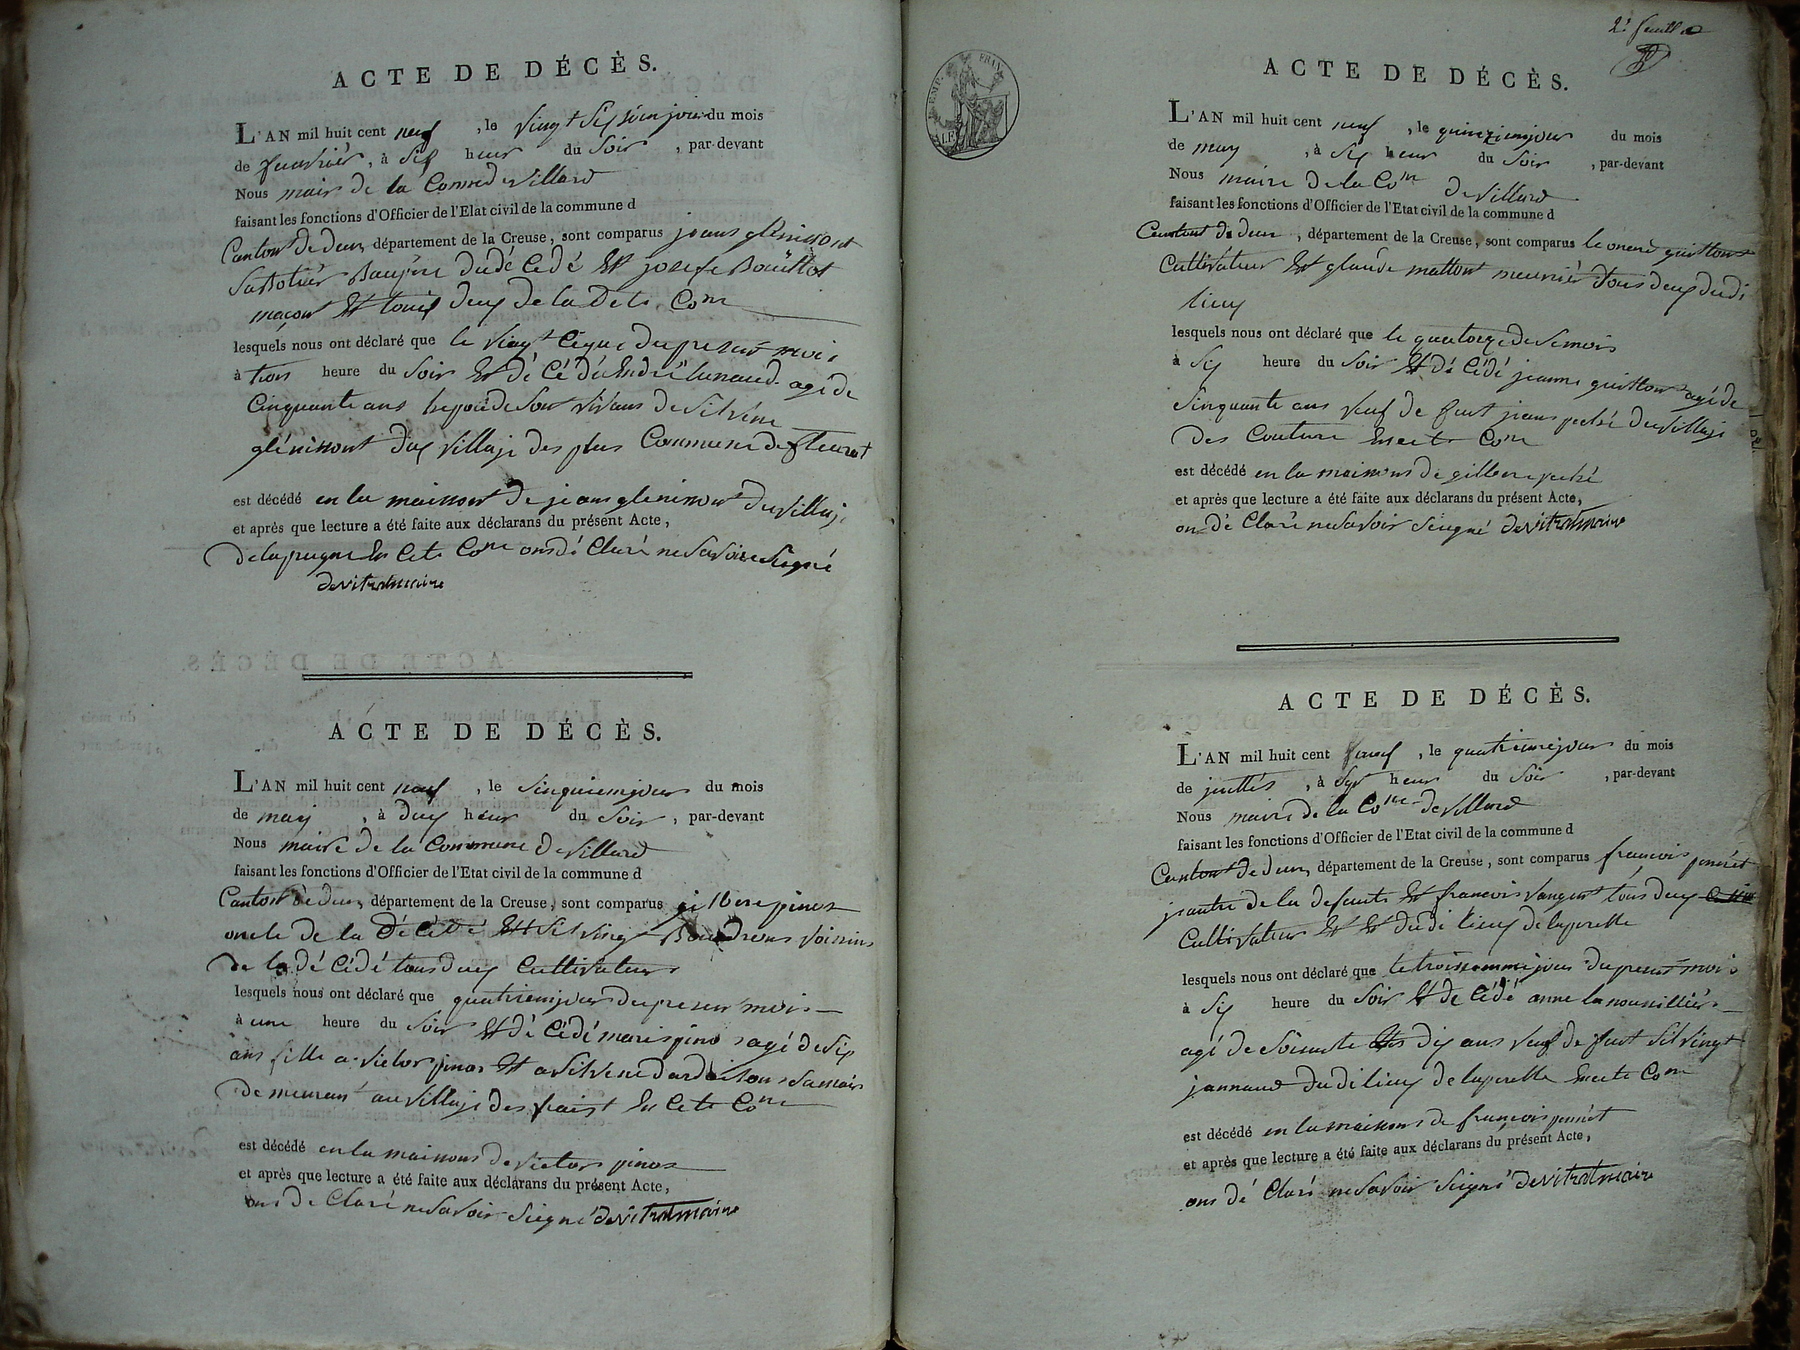 ACTE DE DÉCÈS.
L'AN mil huit cent neuf , le vingt sixiemjour du mois
de fevrier , à six heur du Soir , par-devant
Nous mair de la Comne de villard
faisant les fonctions d'Officier de l'Etat civil de la commune d
Canton de dun, département de la Creuse, sont comparus jeans glenissont
Sabotier Baupère du dé Cedé Et josefe Bouillot
maçon Et tous deux de la dete Com
lesquels nous ont déclaré que le vingt Cinque du present mois
à trois heure du Soir Et dé Cé dé Endré lunaud agé de
Cinquante ans Lepoúe de Son vivans de Silvine
glénissont du village des plas Commune de fleurat
est décédé en la maisont de jeans glenissont du village
et après que lecture a été faite aux déclarans du présent Acte,
de la prugne En Cete Come ons dé Claré ne Savoire Signé
devitratmaire
ACTE DE DÉCÈS.
L'AN mil huit cent neuf , le Sinquiemjour du mois
de may , à deux heur du Soir , par-devant
Nous maire de la Commune de villard
faisant les fonctions d'Officier de l'Etat civil de la commune d
Canton de dun, département de la Creuse, sont comparus gilbere pinos
oncle de la dé Cédé Et Silving Boudreus voisins
de la dé Cédé tous deux Cultivateurs
lesquels nous ont déclaré que quatriemjour du presen mois
à une heure du Soir Et dé Cédé marie pino agé de Six
ans fille a victor pinos Et a Silvene dardoilons Samair
de meurant au village des fraist En Cete Come
est décédé en la maisons de victor pinos
et après que lecture a été faite aux déclarans du présent Acte,
ons de Claré ne Savoir Seigné devitratmaire
2e feuillet
EMP. FRAN.
ACTE DE DÉCÈS.
L'AN mil huit cent neuf , le quinziemjour du mois
de may , à Six heur du Soir , par-devant
Nous maire de la Com de villard
faisant les fonctions d'Officier de l'Etat civil de la commune d
Canton de dun , département de la Creuse, sont comparus leonard guillont
Cultivateur Et glaude mattont meunier tous deux dudi
lieux
lesquels nous ont déclaré que le quatorze de Semois
à Six heure du Soir Et dé Cédé jeanne guillont agé de
Sinquante ans veuf de feut jeans peché du village
des Couture Encete Com
est décédé en la maisons de gilbere peché
et après que lecture a été faite aux déclarans du présent Acte,
on dé Claré ne Savoir Seigné devitratmaire
ACTE DE DÉCÈS.
L'AN mil huit cent neuf , le quatriemejour du mois
de juillés , à Sept heur du Soir , par-devant
Nous maire de la Com de villard
faisant les fonctions d'Officier de l'Etat civil de la commune d
Canton de dun, département de la Creuse, sont comparus francois perrést
jeantre de la defunte Et francois vangent tous deux
Cultivateur Et Et dudi lieux de laperelle
lesquels nous ont déclaré que le troisiemmejour du presen mois
à Six heure du Soir Et de Cédé anne lanouzilliére
agé de Soisante dix ans veuf de feut Silvingt
jannaud dudi lieux de laperelle Encete Com
est décédé en la maisons de francois perrést
et après que lecture a été faite aux déclarans du présent Acte,
ons dé Claré ne Savoir Seigné devitratmaire